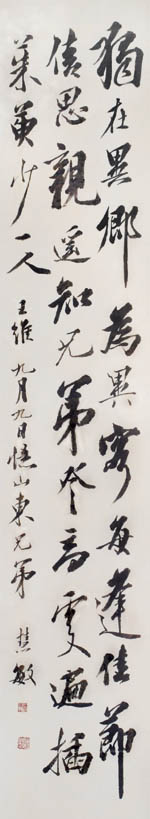 獨在異鄉為異客每逢佳節
倍思親遙知兄弟登高處遍插
茱萸少一人
王維九月九日憶山東兄弟 敏